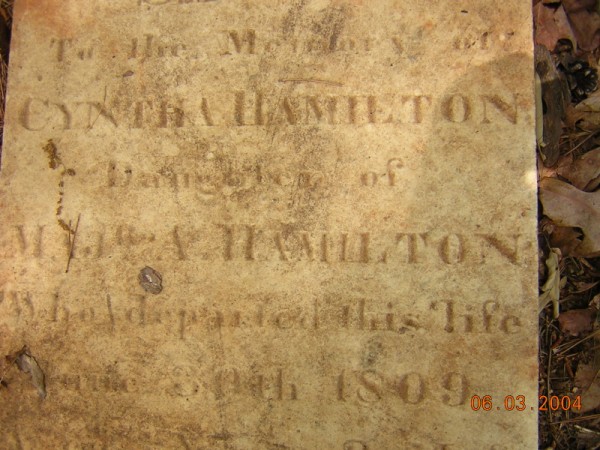 To the Memory of
CYNTHA HAMILTON
Daughter of
HAMILTON
Who departed this life
June 30th 1809
06.03.2004